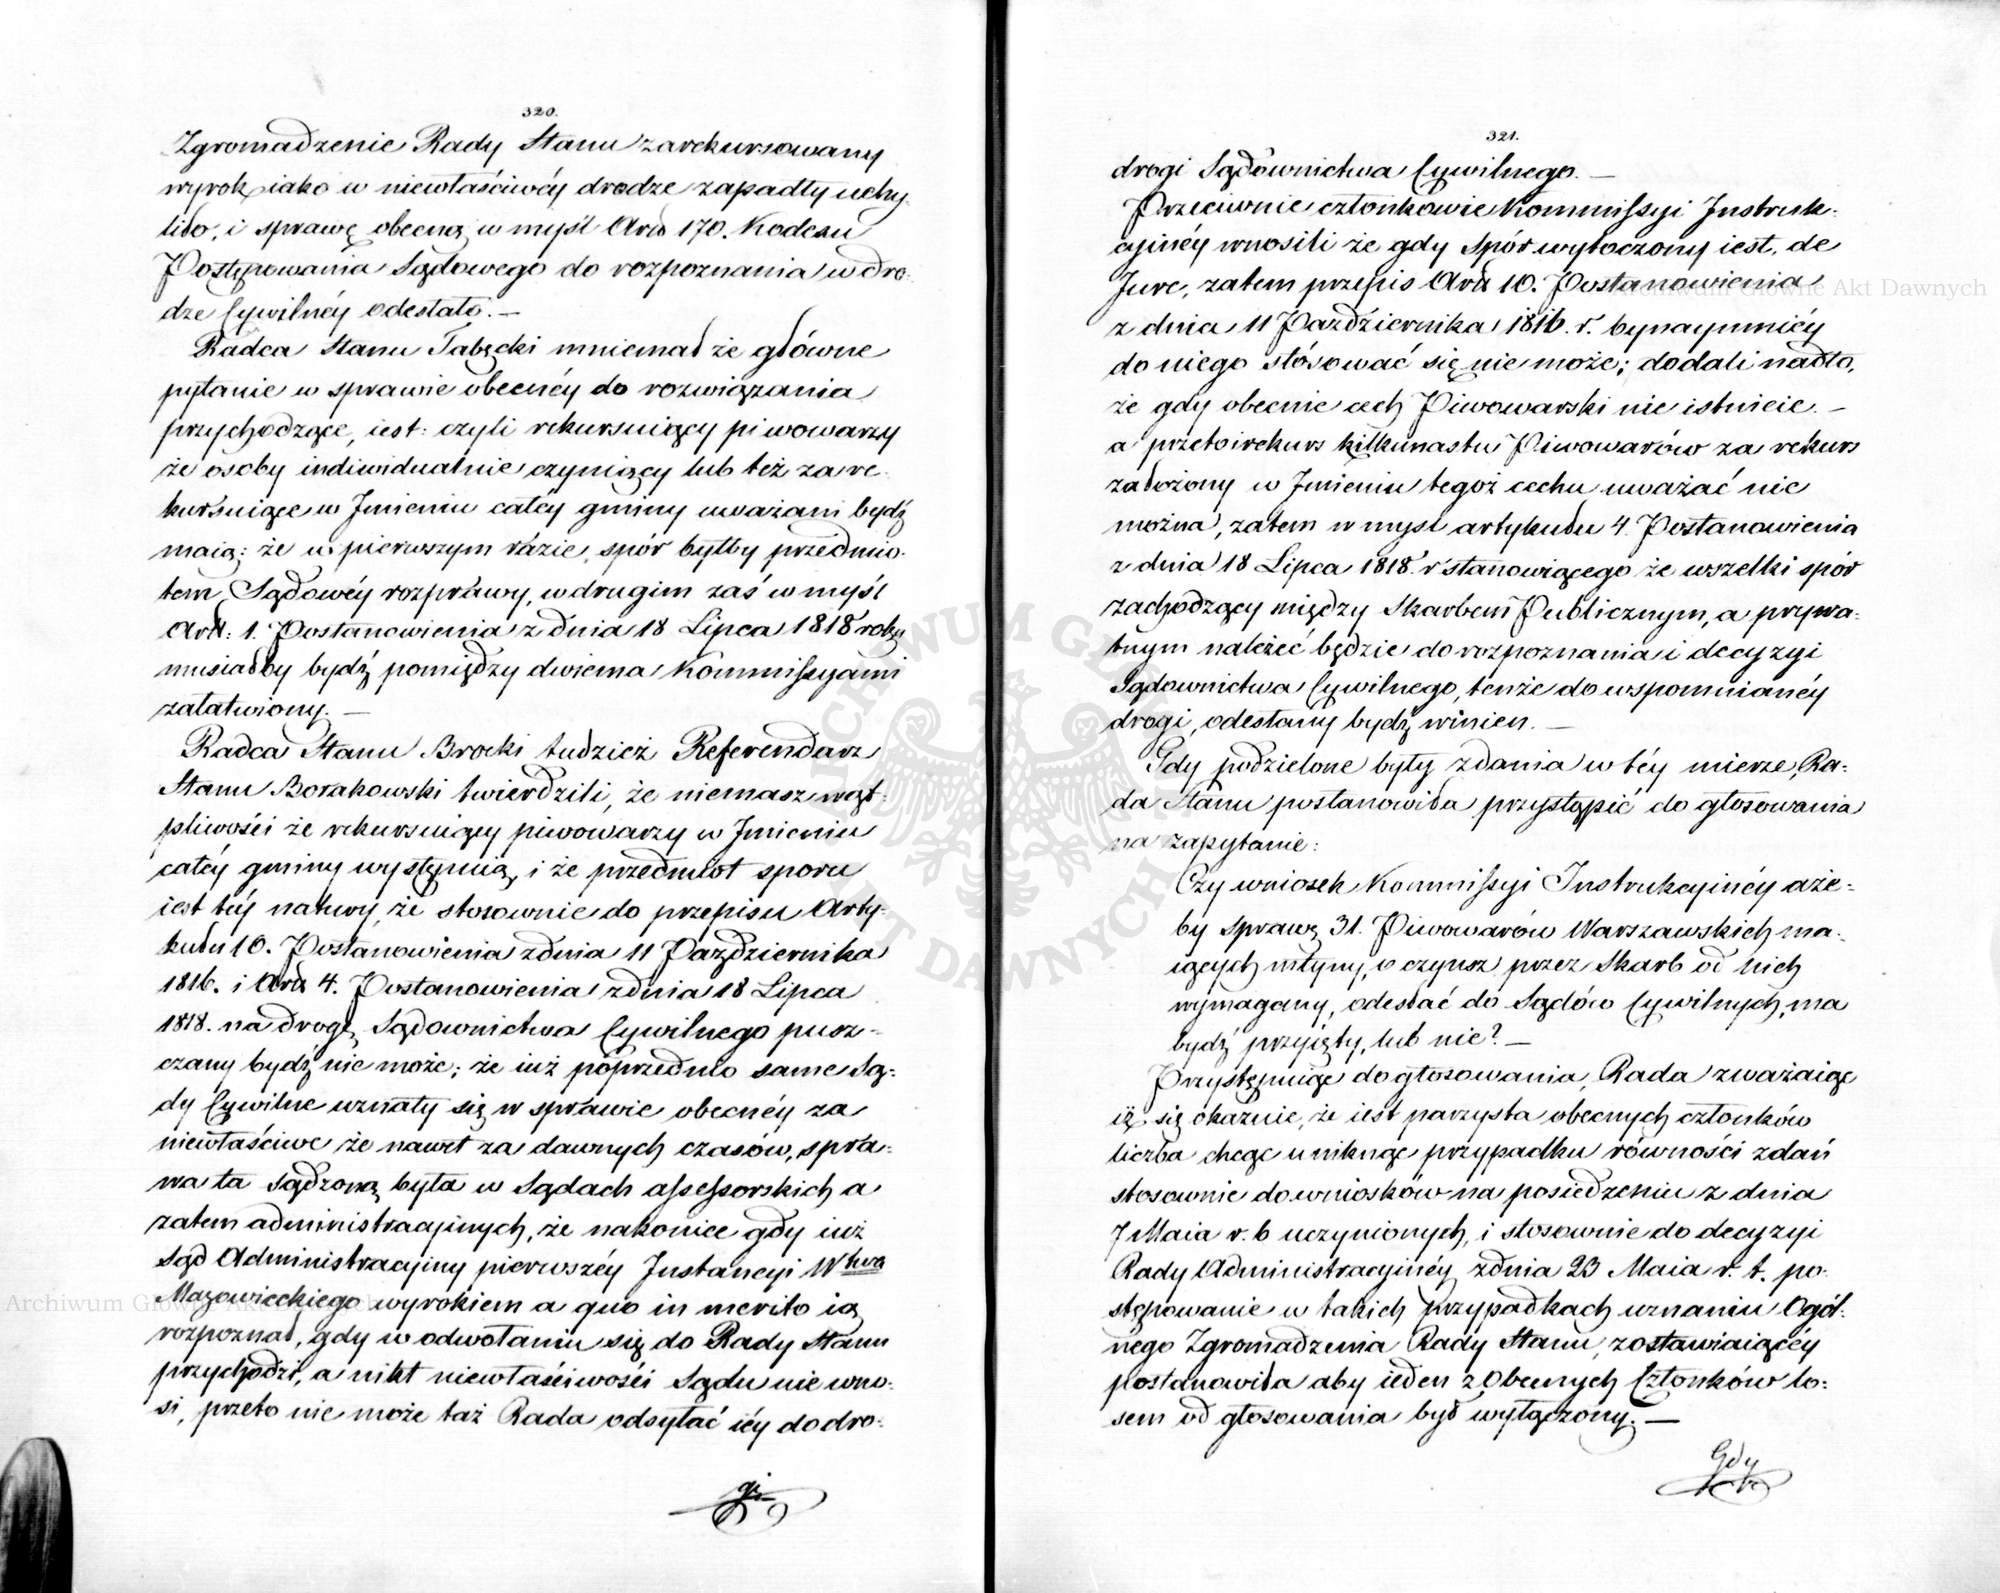 320.
Zgromadzenie Rady Stanu zarekursowany
wyrok iako w niewłaściwéy drodze zapadły uchy-
liło, i sprawę obecną w myśl Artt 170. Kodexu
Postępowania Sądowego do rozpoznania w dro-
dze Cywilnéy odesłało. —
Radca Stanu Tabęcki mniemał że główne
pytanie w sprawie obecnéy do rozwiązania
przychodzące, iest: czyli rekursuiący piwowarzy
że osoby indiwidualnie czyniący lub też za re-
kursuiące w Imieniu całéy gminy uważani bydź
maią: że w pierwszym razie, spór byłby przedmio-
tem Sądowéy rozprawy, w drugim zaś w myśl
Artt: 1. Postanowienia z dnia 18 Lipca 1818 roku
musiałby bydź pomiędzy dwiema Kommissyami
załatwiony. —
Radca Stanu Brocki tudzież Referendarz
Stanu Borakowski twierdzili, że niemasz wąt-
pliwości że rekursuiący piwowarzy w Imieniu
całéy gminy występuią, i że przedmiot sporu
iest téy natury, że stosownie do przepisu Arty-
kułu 10. Postanowienia z dnia 11 Października
1816. i Artt 4. Postanowienia z dnia 18 Lipca
1818. na drogę Sądownictwa Cywilnego pusz-
czany bydź nie może; że iuż poprzednio same Są-
dy Cywilne uznały się w sprawie obecnéy za
niewłaściwe że nawet za dawnych czasów, spra-
wa ta sądzoną była w Sądach assessorskich a
zatem administracyinych, że nakoniec gdy iuż
Sąd Administracyiny pierwszéy Instancyi Wtwa
Mazowieckiego wyrokiem a quo in merito ią
rozpoznał, gdy w odwołaniu się do Rady Stanu
przychodzi, a nikt niewłaściwości Sądu nie wno-
si, przeto nie może taż Rada odsyłać iéy do dro-
gi
321.
drogi Sądownictwa Cywilnego. —
Przeciwnie członkowie Kommissyi Instruk-
cyinéy wnosili że gdy Spór wytoczony iest, de
Jure, zatem przepis Artt 10. Postanowienia
z dnia 11 Października 1816. r. bynaymniéy
do niego stósować się nie może; dodali nadto,
że gdy obecnie cech Piwowarski nie istnieie. —
a przeto i rekurs kilkunastu Piwowarów za rekurs
założony w Imieniu tegoż cechu uważać nie
można, zatem w mysl artykułu 4. Postanowienia
z dnia 18 Lipca 1818. r stanowiącego że wszelki spór
zachodzący między Skarbem Publicznym, a prywa-
tnym należeć będzie do rozpoznania i decyzyi
Sądownictwa Cywilnego, tenże do wspomnianéy
drogi, odesłany bydź winien. —
Gdy podzielone były zdania w téy mierze, Ra-
da Stanu postanowiła przystąpić do głosowania
na zapytanie:
Czy wniosek Kommissyi Instrukcyinéy aże-
by sprawę 31. Piwowarów Warszawskich ma-
iących młyny, o czynsz przez Skarb od nich
wymagany, odesłać do Sądów Cywilnych, ma
bydź przyięty, lub nie? —
Przystępuiąc do głosowania, Rada zważaiąc
iż się okazuie, że iest parzysta obecnych członków
liczba chcąc uniknąć przypadku równości zdań
stosownie do wniosków na posiedzeniu z dnia
7 Maia r. b uczynionych, i stosownie do decyzyi
Rady Administracyinéy z dnia 23 Maia r. t. po-
stępowanie w takich przypadkach uznaniu Ogól-
nego Zgromadzenia Rady Stanu, zostawiaiącéy
postanowiła aby ieden z Obecnych Członków lo-
sem od głosowania był wyłączony. —
Gdy
Archiwum Główne Akt Dawnych
Archiwum Główne Akt Dawnych
ARCHIWUM GŁÓWNE AKT DAWNYCH